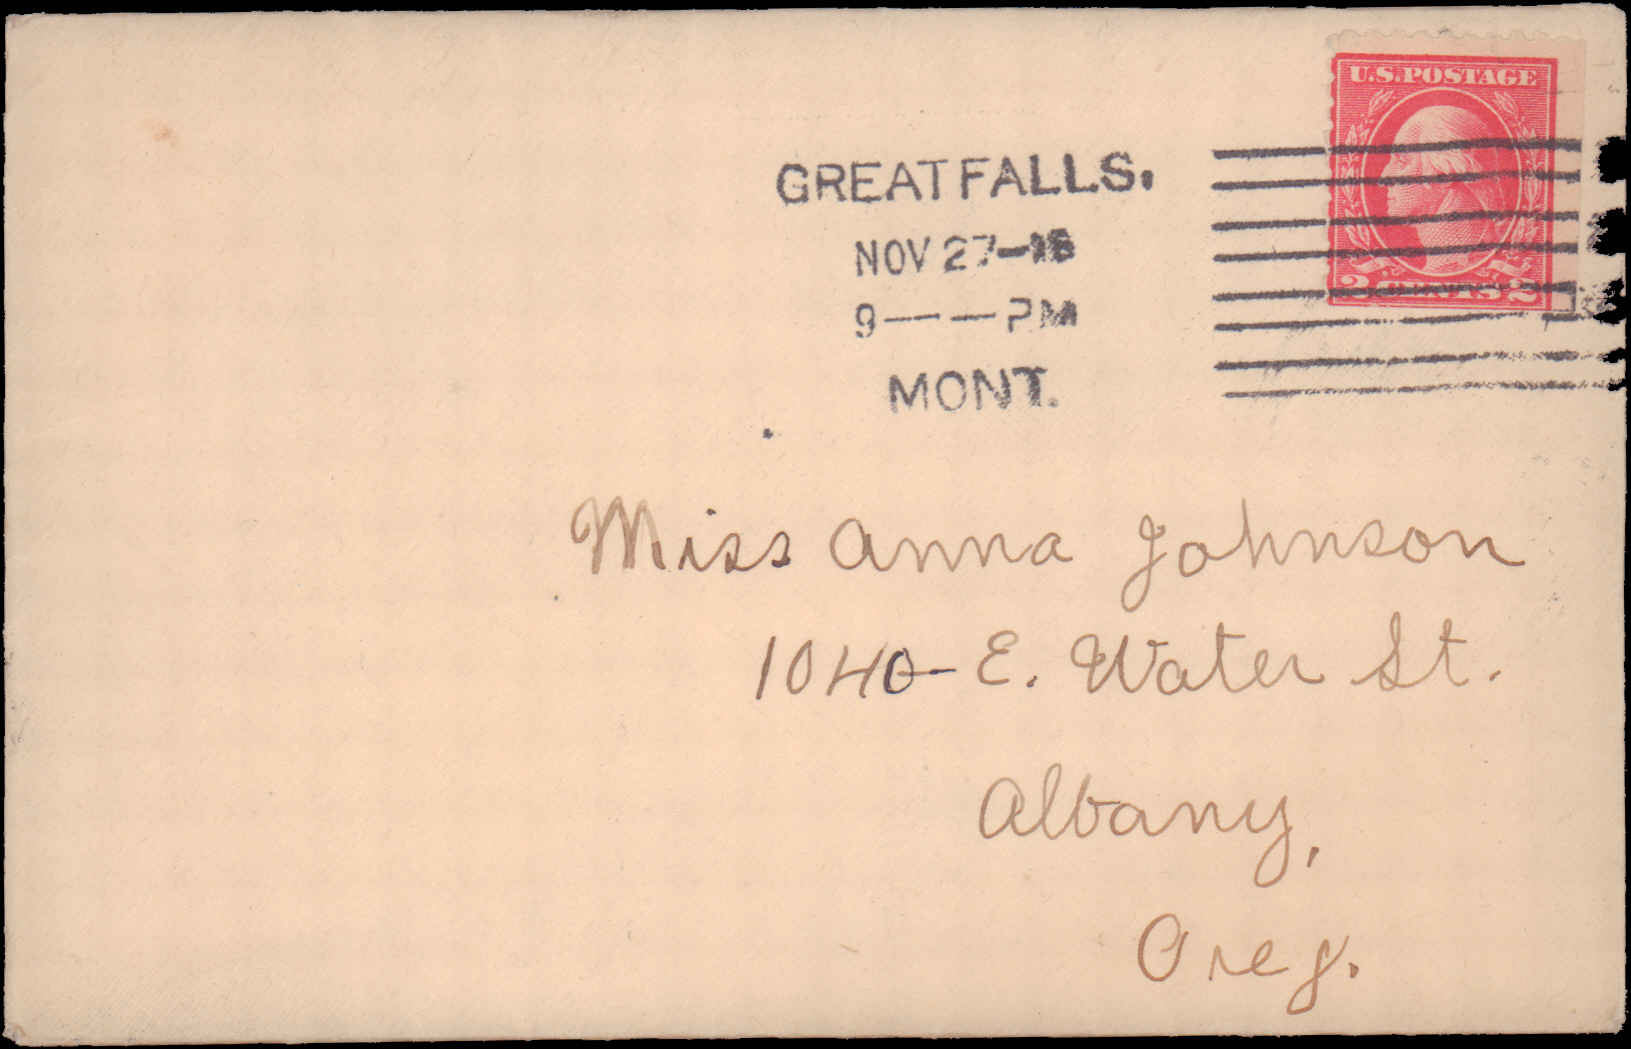 U.S. POSTAGE
2 CENTS 2
GREAT FALLS.
NOV 27
9 — — PM
MONT.
Miss Anna Johnson
1040- E. Water St.
Albany,
Oreg.